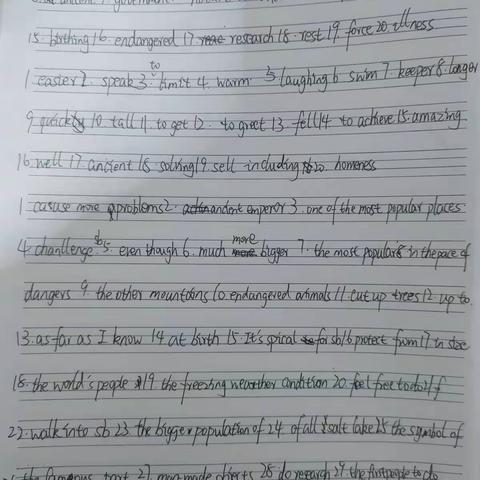 15. birthing 16. endangered 17. research 18. rest 19. force 20. illness
1 easter 2. speak 3. to limit 4. warm 5 laughing 6 swim 7. keeper 8. longer
9 quickly 10 tall 11. to get 12. to greet 13. fell 14. to achieve 15. amazing
16. well 17 ancient 18. solving 19. sell including 20. homeness
1 casuse more problems 2. ancient emperor 3. one of the most popular places
4. chanllenge sb 5. even though 6. much more bigger 7. the most popular 8 in the pace of
dangers 9. the other mountains 10. endangered animals 11. cut up trees 12. up to
13. as far as I know 14 at birth 15. It's spical for sb 16 protect from 17 in size
18. the world's people 19. the freezing weather condition 20. feel free to do 21 f
22. walk into sb 23 the bigger population of 24. of all salt lake 25 the symbol of
27. man-made objects 28 do research 29 the first people to do